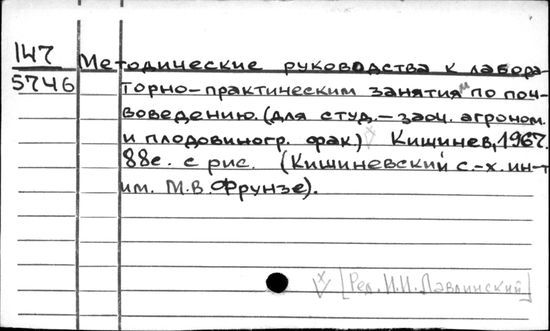 147
5746
Методические руководства к лабора-
торно-практическим занятиям по поч-
воведению. (для студ. – заоч. агроном.
и плодовиногр. фак) Кишинев, 1967.
88с. с рис. (Кишиневский с.-х. ин-т
им. М.В. Фрунзе).
[Ред. И.И. Лавлинский]